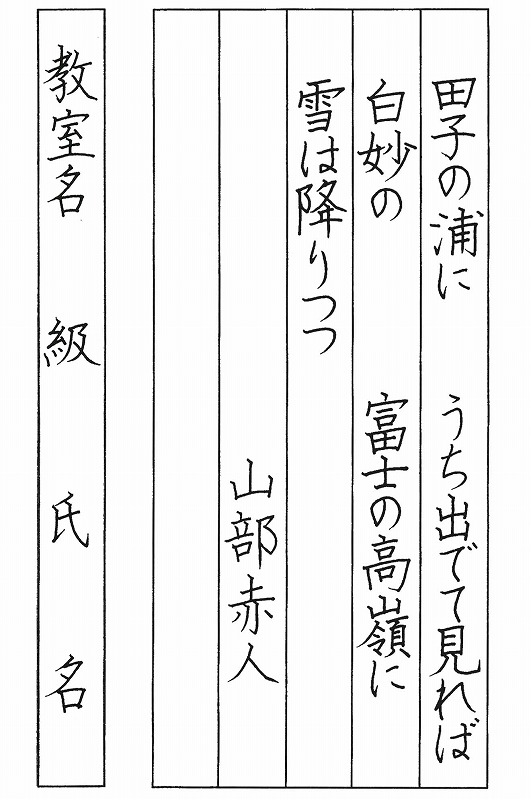 田子の浦に　うち出でて見れば
白妙の　富士の高嶺に
雪は降りつつ
山部赤人
教室名　級　氏　名